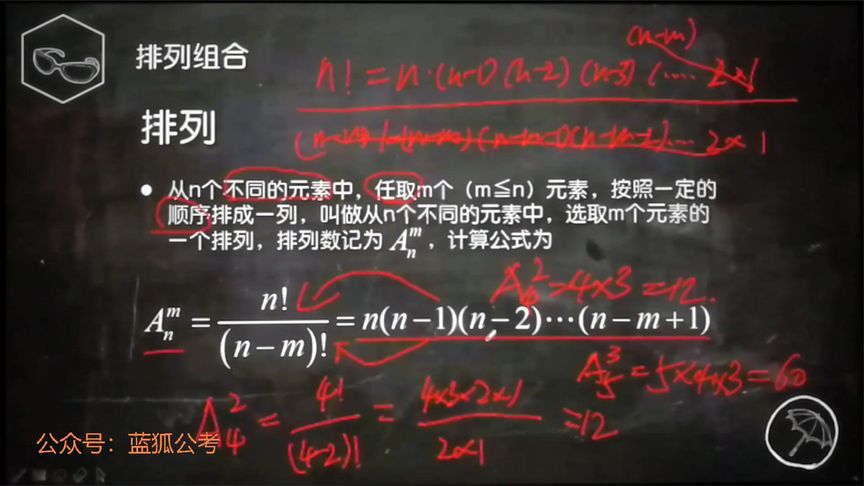 排列组合
(n-m)
n! = n·(n-1)(n-2)(n-3)(···· 2×1
2×1
排列
● 从n个不同的元素中，任取m个（m≦n）元素，按照一定的
顺序排成一列，叫做从n个不同的元素中，选取m个元素的
一个排列，排列数记为 Aₙᵐ，计算公式为
=4×3=12.
Aₙᵐ = n!/(n-m)! = n(n-1)(n-2)···(n-m+1)
A₅³=5×4×3=60
A₄² = 4!/(4-2)! = 4×3×2×1/2×1 =12
公众号：蓝狐公考